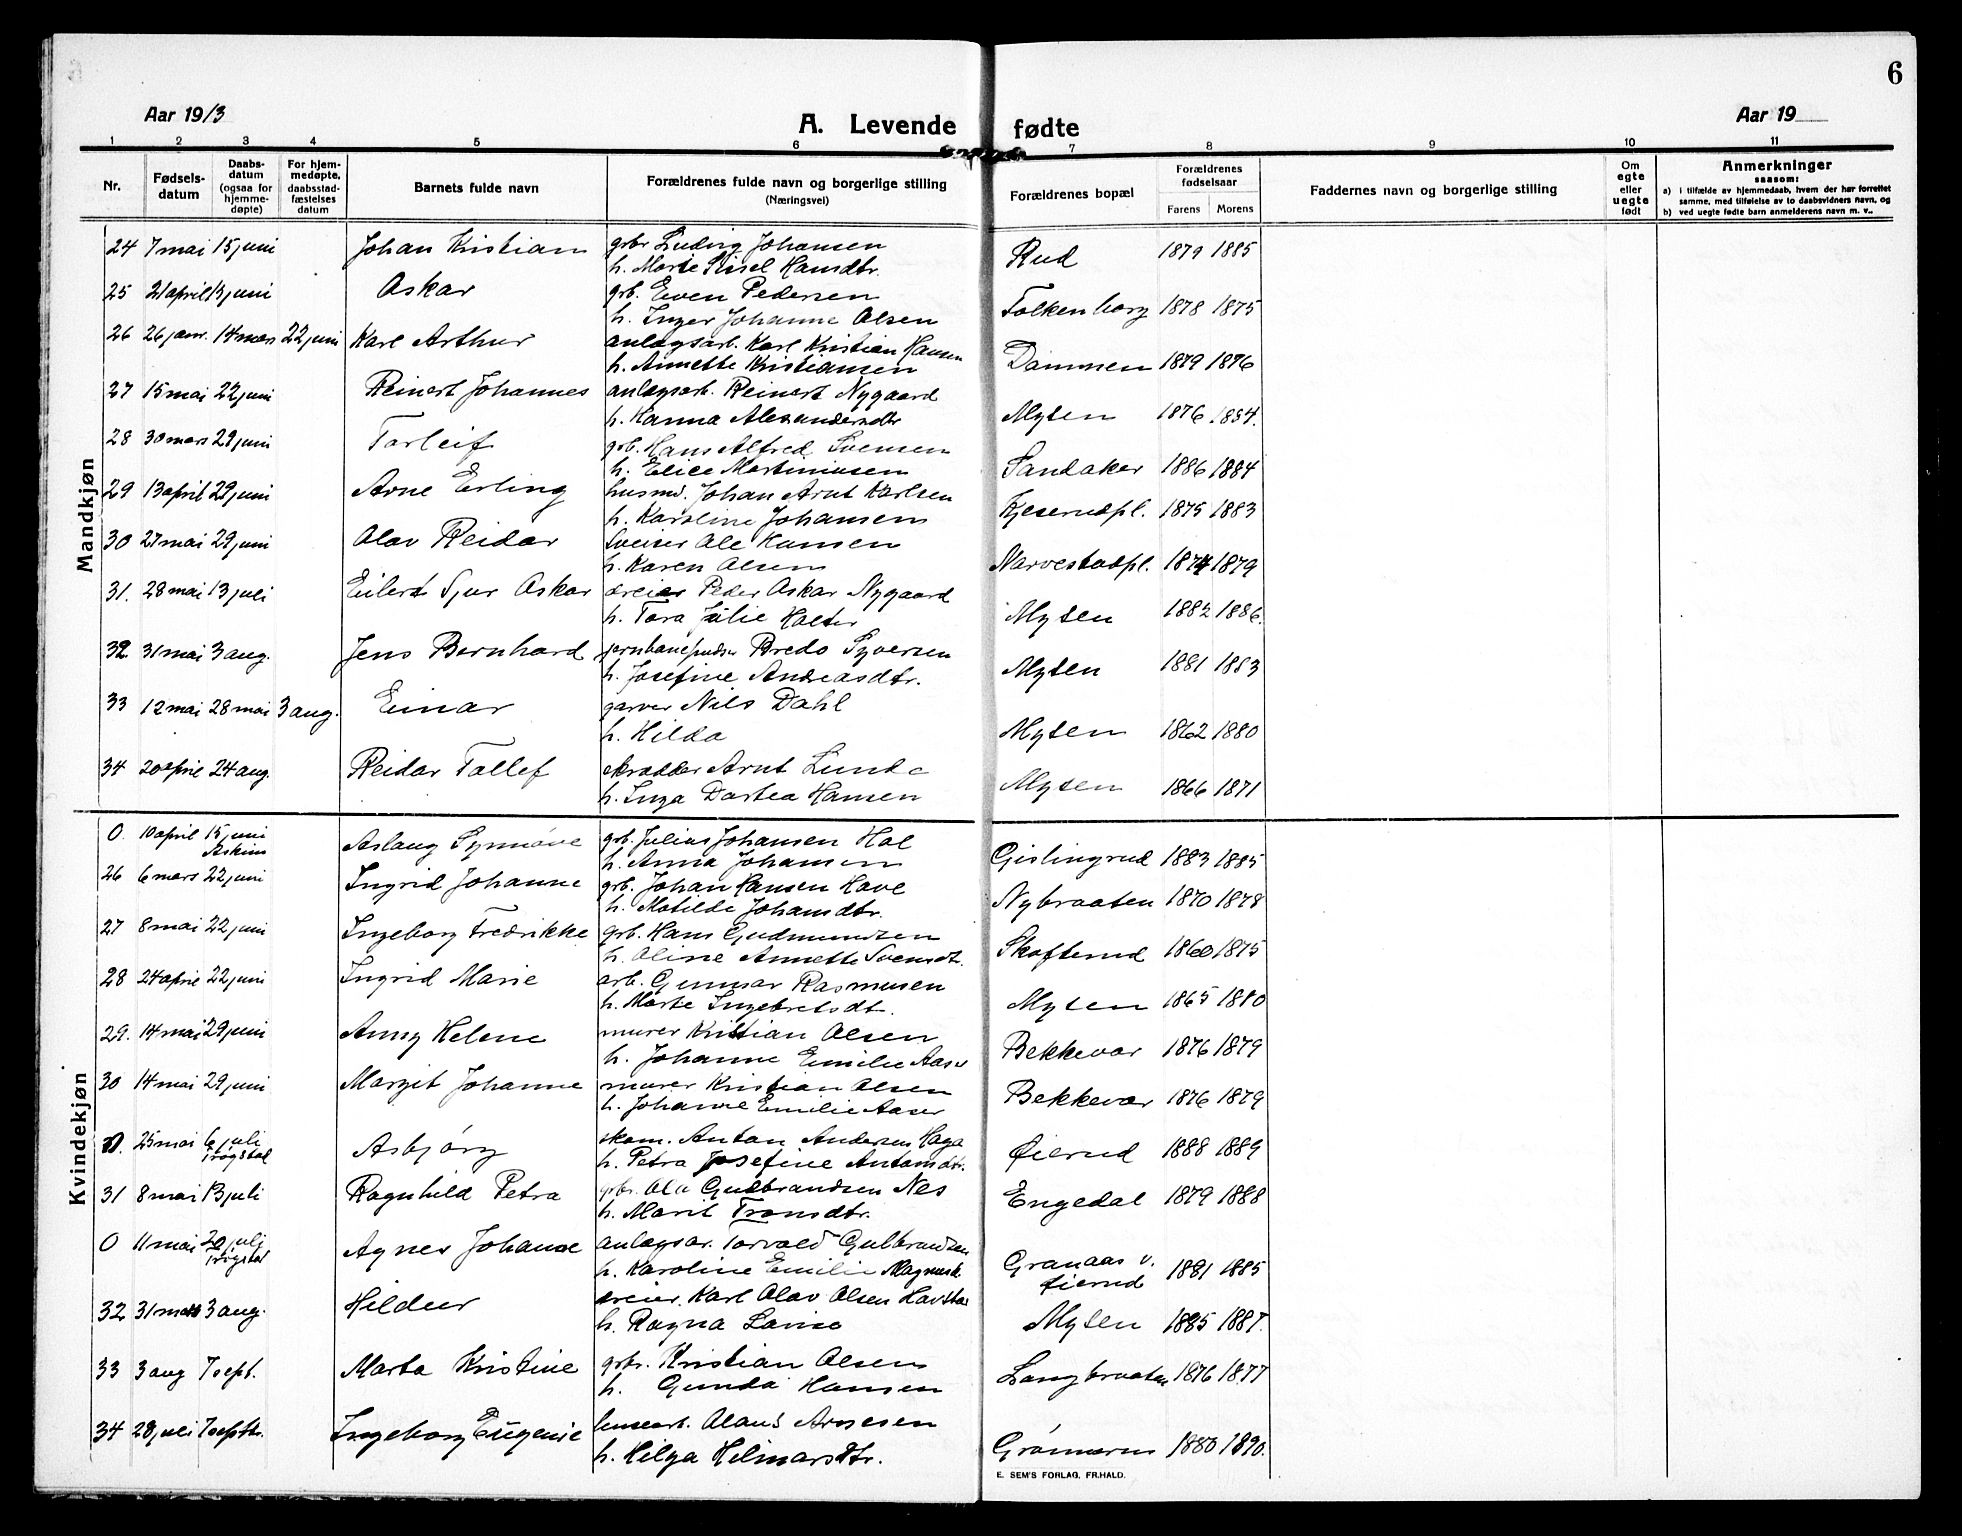 6
Aar 1913
A. Levende fødte
Aar 19
1 2 3 4 5 6 7 8 9 10 11
Nr.
Fødsels-
datum
Daabs-
datum
(ogsaa for
hjemme-
døpte)
For hjem-
medøpte,
daabsstad-
fæstelses
datum
Barnets fulde navn
Forældrenes fulde navn og borgerlige stilling
(Næringsvei)
Forældrenes bopæl
Forældrenes
fødselsaar
Farens Morens
Faddernes navn og borgerlige stilling
Om
egte
eller
uegte
født
Anmerkninger
saasom:
a) i tilfælde av hjemmedaab, hvem der har forrettet
samme, med tilføielse av to daabsvidners navn, og
b) ved uegte fødte barn anmelderens navn m. v..
Mandkjøn
24 7 mai 15 juni Johan Kristian grbr Ludvig Johansen Rud 1879 1885
h. Marie Sisel Hansdtr.
25 21 april 13 juni Askar grb. Even Pedersen Folkenborg 1878 1875
h. Inger Johanne Olsen
26 26 janr. 14 mars 22 juni Karl Arthur anlægsarb. Karl Kristian Hansen Dammen 1879 1876
h. Annette Kristiansen
27 15 mai 22 juni Reinert Johannes anlægsarb. Reinert Nygaard Mysen 1876 1884.
h. Hanna Alexandersdtr
28 30 mars 29 juni Torleif grb. Hans Alfred Svensen Sandaker 1886 1884
h. Elise Martiniusen
29 13 april 29 juni Arne Erling husmd. Johan Arnt Karlsen Kjeserudpl. 1875 1883
h. Karoline Johansen
30 27 mai 29 juni Olav Reidar Sveiser Ole Hansen Narvestadpl. 1874 1879
h. Karen Olsen
31. 28 mai 13 juli Eilert Sjur Oskar dreier Peder Oskar Nygaard Mysen 1882 1886.
h. Tora Julie Holter
32. 31 mai 3 aug. Jens Bernhard jernbanepudser Bredo Syversen Mysen 1881 1883
h. Josefine Andreasdtr.
33 12 mai 28 mai 3 aug. Einar garver Nils Dahl Mysen 1862 1880
h. Hilda
34 20 april 24 aug. Reidar Tollef skrædder Arnt Lund Mysen 1866 1871
h. Inga Dortea Hansen
Kvindekjøn
0. 10 april 15 juni Aslaug Synnøve grb. Julius Johansen Hol Gislingrud 1883 1885
Askim h. Anna Johansen
26 6 mars 22 juni Ingrid Johanne grb. Johan Hansen Hove Nybraaten 1870 1878
h. Matilde Johansdtr.
27 8 mai 22 juni Ingeborg Fredrikke grb. Hans Gudmundsen Skofterud 1860 1875
h. Oline Annette Svensdt.
28 24 april 22 juni Ingrid Marie arb. Gunnar Rasmusen Mysen 1865 1880
h. Marte Ingebretsdt.
29. 14 mai 29 juni Anny Helene murer Kristian Olsen Bekkevar 1876 1879
h. Johanne Emilie Aaser
30 14 mai 29 juni Margit Johanne murer Kristian Olsen Bekkevar 1876 1879
h. Johanne Emilie Aaser
0. 25 mai 6 juli Asbjørg skom. Anton Andersen Haga Øierud 1888 1889
Trøgstad h. Petra Josefine Antonsdtr.
31 8 mai 13 juli Ragnhild Petra grbr. Ole Gulbrandsen Nes Engedal 1879 1888
h. Marit Tronsdtr.
0 11 mai 20 juli Agnes Johanne anlægsar. Torvald Gulbrandsen Granaas v. 1881 1885
Trøgstad h. Karoline Emilie Magnusd. Øierud
32 31 mars 3 aug. Hildur dreier. Karl Olav Olsen Havstad Mysen 1885 1887.
h. Ragna Lovise
33 3 aug 7 sept. Marta Kristine grbr. Kristian Olsen Langbraaten 1876 1877
h. Gunda Hansen
34 28 juli 7 septbr. Ingeborg Eugenie Olaus Arnesen 1880 1890.
h. Helga Hilmarsdtr.
E. SEM'S FORLAG, FR.HALD.